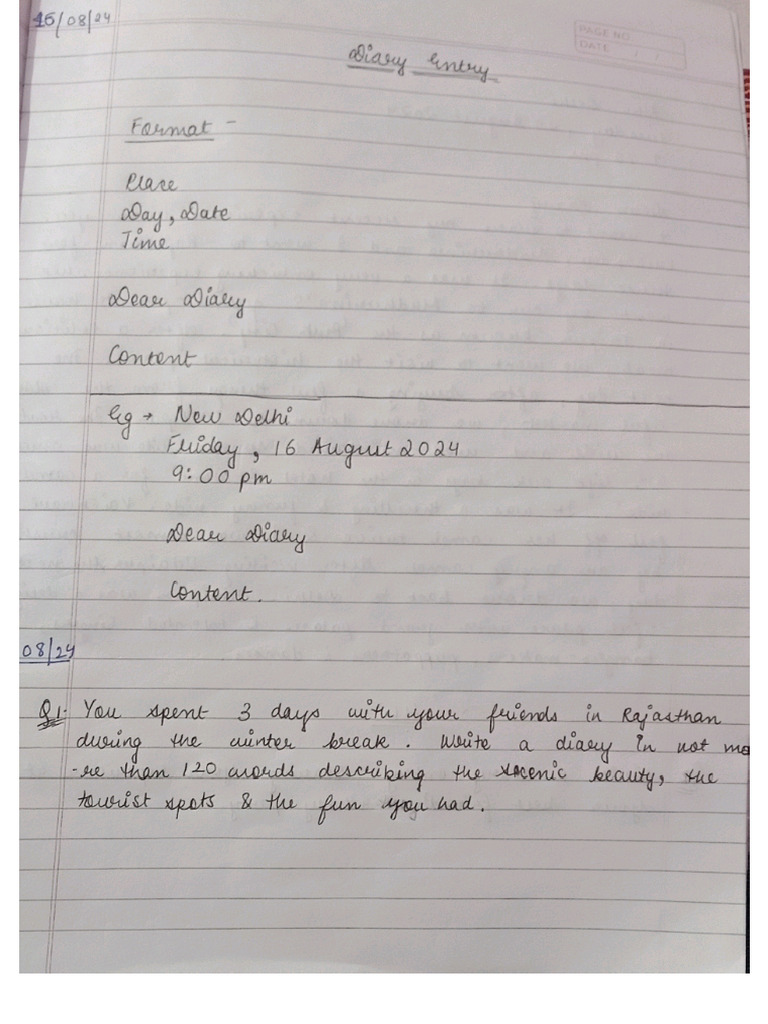 16/08/24
PAGE NO.
DATE / /
Diary Entry
Format -
Place
Day, Date
Time
Dear Diary
Content
Eg → New Delhi
Friday, 16 August 2024
9:00 pm
Dear Diary
Content.
08/24
Q1. You spent 3 days with your friends in Rajasthan
during the winter break. Write a diary in not mo
-re than 120 words describing the scenic beauty, the
tourist spots & the fun you had.